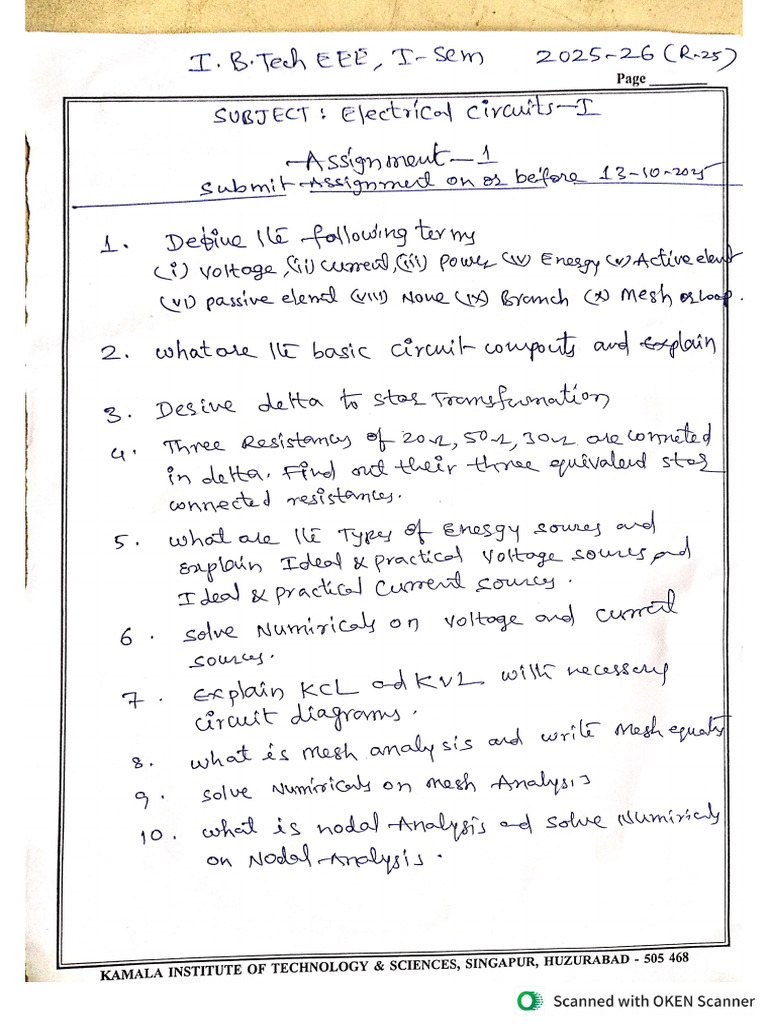 I. B.Tech EEE, I-Sem 2025-26 (R-25)
Page
SUBJECT: Electrical Circuits-I
Assignment-1
Submit Assignment on or before 13-10-2025
1. Define the following terms
(i) Voltage, (ii) Current, (iii) Power (iv) Energy (v) Active elent
(vi) passive elemt (viii) Node (ix) Branch (x) Mesh or Loop.
2. what are the basic circuit compouts and Explain
3. Derive delta to star Transformation
4. Three Resistances of 20Ω, 50Ω, 30Ω are conneted
in delta. Find out their three equivalent star
connected resistances.
5. what are the Types of Energy soures and
Explain Ideal & practical Voltage soures and
Ideal & practical Current sources.
6. solve Numiricals on voltage and current
sources.
7. Explain KCL ad KVL with necessery
circuit diagrams.
8. what is mesh analysis and write Mesh equats
9. solve Numiricals on mesh Analysis
10. what is nodal Analysis and solve Numiricals
on Nodal Analysis.
KAMALA INSTITUTE OF TECHNOLOGY & SCIENCES, SINGAPUR, HUZURABAD - 505 468
Scanned with OKEN Scanner